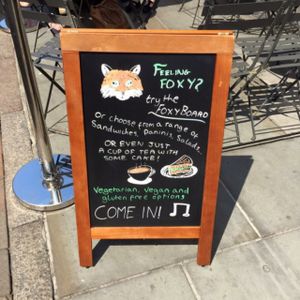 FEELING
FOXY?
try the
FOXYBOARD
OR choose from a range of
Sandwiches, Paninis, Salads,
OR EVEN JUST
A CUP OF TEA WITH
SOME CAKE!
Vegetarian, vegan and
gluten free options
COME IN!